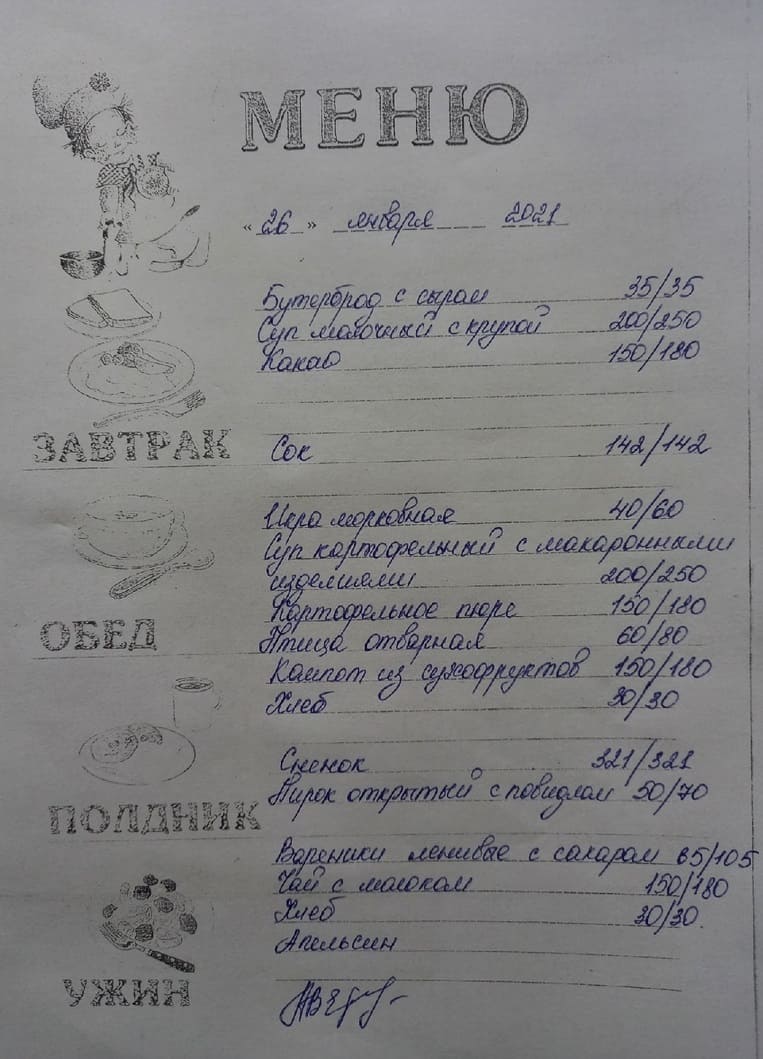 МЕНЮ
«26» января 2021
Бутерброд с сыром 35/35
Суп молочный с крупой 200/250
Какао 150/180
ЗАВТРАК
Сок 142/142
Икра морковная 40/60
Суп картофельный с макаронными
изделиями 200/250
Картофельное пюре 150/180
ОБЕД
Птица отварная 60/80
Компот из сухофруктов 150/180
Хлеб 30/30
Снежок 321/321
Пирог открытый с повидлом 50/70
ПОЛДНИК
Вареники ленивые с сахаром 65/105
Чай с молоком 150/180
Хлеб 30/30.
Апельсин
УЖИН